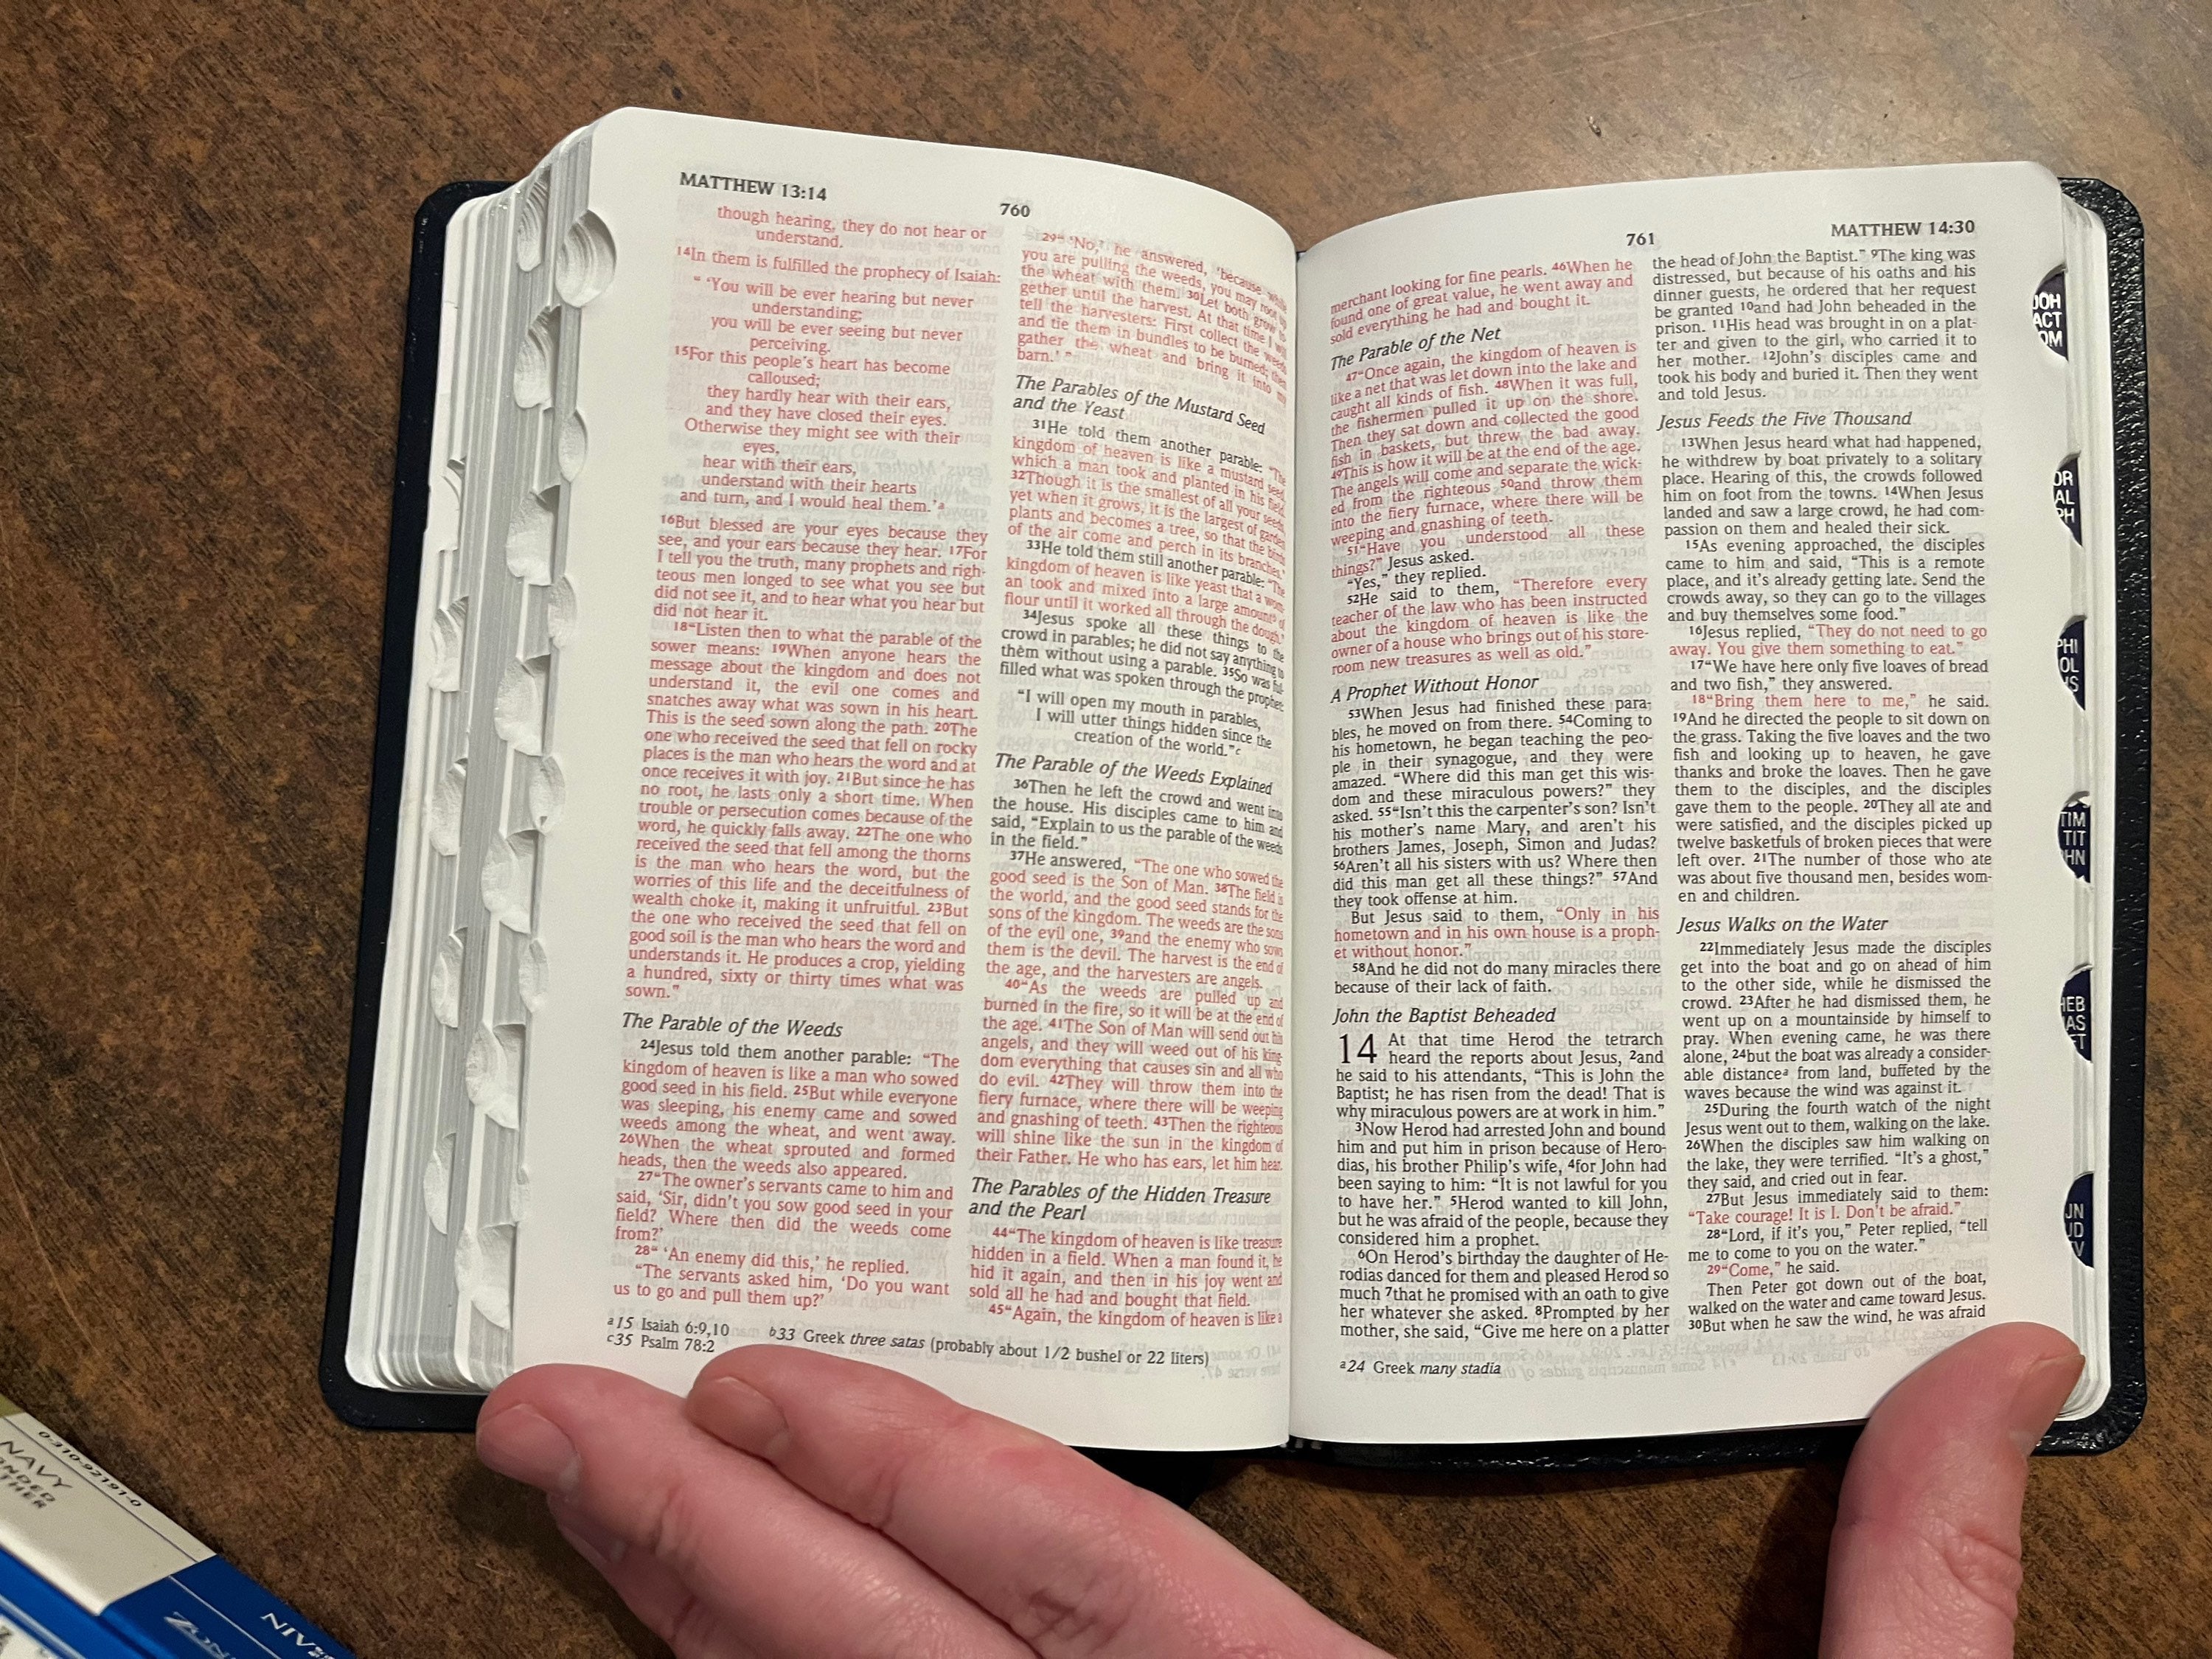 MATTHEW 13:14
760
though hearing, they do not hear or
understand.
14In them is fulfilled the prophecy of Isaiah:
“ ‘You will be ever hearing but never
understanding;
you will be ever seeing but never
perceiving.
15For this people’s heart has become
calloused;
they hardly hear with their ears,
and they have closed their eyes.
Otherwise they might see with their
eyes,
hear with their ears,
understand with their hearts
and turn, and I would heal them.’a
16But blessed are your eyes because they
see, and your ears because they hear. 17For
I tell you the truth, many prophets and righ-
teous men longed to see what you see but
did not see it, and to hear what you hear but
did not hear it.
18“Listen then to what the parable of the
sower means: 19When anyone hears the
message about the kingdom and does not
understand it, the evil one comes and
snatches away what was sown in his heart.
This is the seed sown along the path. 20The
one who received the seed that fell on rocky
places is the man who hears the word and at
once receives it with joy. 21But since he has
no root, he lasts only a short time. When
trouble or persecution comes because of the
word, he quickly falls away. 22The one who
received the seed that fell among the thorns
is the man who hears the word, but the
worries of this life and the deceitfulness of
wealth choke it, making it unfruitful. 23But
the one who received the seed that fell on
good soil is the man who hears the word and
understands it. He produces a crop, yielding
a hundred, sixty or thirty times what was
sown.”
The Parable of the Weeds
24Jesus told them another parable: “The
kingdom of heaven is like a man who sowed
good seed in his field. 25But while everyone
was sleeping, his enemy came and sowed
weeds among the wheat, and went away.
26When the wheat sprouted and formed
heads, then the weeds also appeared.
27“The owner’s servants came to him and
said, ‘Sir, didn’t you sow good seed in your
field? Where then did the weeds come
from?’
28“ ‘An enemy did this,’ he replied.
“The servants asked him, ‘Do you want
us to go and pull them up?’
29“ ‘No,’ he answered, ‘because while
you are pulling the weeds, you may root up
the wheat with them. 30Let both grow to-
gether until the harvest. At that time I will
tell the harvesters: First collect the weeds
and tie them in bundles to be burned; then
gather the wheat and bring it into my
barn.’ ”
The Parables of the Mustard Seed
and the Yeast
31He told them another parable: “The
kingdom of heaven is like a mustard seed,
which a man took and planted in his field.
32Though it is the smallest of all your seeds,
yet when it grows, it is the largest of garden
plants and becomes a tree, so that the birds
of the air come and perch in its branches.”
33He told them still another parable: “The
kingdom of heaven is like yeast that a wom-
an took and mixed into a large amountb of
flour until it worked all through the dough.”
34Jesus spoke all these things to the
crowd in parables; he did not say anything to
them without using a parable. 35So was ful-
filled what was spoken through the prophet:
“I will open my mouth in parables,
I will utter things hidden since the
creation of the world.”c
The Parable of the Weeds Explained
36Then he left the crowd and went into
the house. His disciples came to him and
said, “Explain to us the parable of the weeds
in the field.”
37He answered, “The one who sowed the
good seed is the Son of Man. 38The field is
the world, and the good seed stands for the
sons of the kingdom. The weeds are the sons
of the evil one, 39and the enemy who sows
them is the devil. The harvest is the end of
the age, and the harvesters are angels.
40“As the weeds are pulled up and
burned in the fire, so it will be at the end of
the age. 41The Son of Man will send out his
angels, and they will weed out of his king-
dom everything that causes sin and all who
do evil. 42They will throw them into the
fiery furnace, where there will be weeping
and gnashing of teeth. 43Then the righteous
will shine like the sun in the kingdom of
their Father. He who has ears, let him hear.
The Parables of the Hidden Treasure
and the Pearl
44“The kingdom of heaven is like treasure
hidden in a field. When a man found it, he
hid it again, and then in his joy went and
sold all he had and bought that field.
45“Again, the kingdom of heaven is like a
a15 Isaiah 6:9,10 b33 Greek three satas (probably about 1/2 bushel or 22 liters)
c35 Psalm 78:2
761
MATTHEW 14:30
merchant looking for fine pearls. 46When he
found one of great value, he went away and
sold everything he had and bought it.
The Parable of the Net
47“Once again, the kingdom of heaven is
like a net that was let down into the lake and
caught all kinds of fish. 48When it was full,
the fishermen pulled it up on the shore.
Then they sat down and collected the good
fish in baskets, but threw the bad away.
49This is how it will be at the end of the age.
The angels will come and separate the wick-
ed from the righteous 50and throw them
into the fiery furnace, where there will be
weeping and gnashing of teeth.
51“Have you understood all these
things?” Jesus asked.
“Yes,” they replied.
52He said to them, “Therefore every
teacher of the law who has been instructed
about the kingdom of heaven is like the
owner of a house who brings out of his store-
room new treasures as well as old.”
A Prophet Without Honor
53When Jesus had finished these para-
bles, he moved on from there. 54Coming to
his hometown, he began teaching the peo-
ple in their synagogue, and they were
amazed. “Where did this man get this wis-
dom and these miraculous powers?” they
asked. 55“Isn’t this the carpenter’s son? Isn’t
his mother’s name Mary, and aren’t his
brothers James, Joseph, Simon and Judas?
56Aren’t all his sisters with us? Where then
did this man get all these things?” 57And
they took offense at him.
But Jesus said to them, “Only in his
hometown and in his own house is a proph-
et without honor.”
58And he did not do many miracles there
because of their lack of faith.
John the Baptist Beheaded
14 At that time Herod the tetrarch
heard the reports about Jesus, 2and
he said to his attendants, “This is John the
Baptist; he has risen from the dead! That is
why miraculous powers are at work in him.”
3Now Herod had arrested John and bound
him and put him in prison because of Hero-
dias, his brother Philip’s wife, 4for John had
been saying to him: “It is not lawful for you
to have her.” 5Herod wanted to kill John,
but he was afraid of the people, because they
considered him a prophet.
6On Herod’s birthday the daughter of He-
rodias danced for them and pleased Herod so
much 7that he promised with an oath to give
her whatever she asked. 8Prompted by her
mother, she said, “Give me here on a platter
the head of John the Baptist.” 9The king was
distressed, but because of his oaths and his
dinner guests, he ordered that her request
be granted 10and had John beheaded in the
prison. 11His head was brought in on a plat-
ter and given to the girl, who carried it to
her mother. 12John’s disciples came and
took his body and buried it. Then they went
and told Jesus.
Jesus Feeds the Five Thousand
13When Jesus heard what had happened,
he withdrew by boat privately to a solitary
place. Hearing of this, the crowds followed
him on foot from the towns. 14When Jesus
landed and saw a large crowd, he had com-
passion on them and healed their sick.
15As evening approached, the disciples
came to him and said, “This is a remote
place, and it’s already getting late. Send the
crowds away, so they can go to the villages
and buy themselves some food.”
16Jesus replied, “They do not need to go
away. You give them something to eat.”
17“We have here only five loaves of bread
and two fish,” they answered.
18“Bring them here to me,” he said.
19And he directed the people to sit down on
the grass. Taking the five loaves and the two
fish and looking up to heaven, he gave
thanks and broke the loaves. Then he gave
them to the disciples, and the disciples
gave them to the people. 20They all ate and
were satisfied, and the disciples picked up
twelve basketfuls of broken pieces that were
left over. 21The number of those who ate
was about five thousand men, besides wom-
en and children.
Jesus Walks on the Water
22Immediately Jesus made the disciples
get into the boat and go on ahead of him
to the other side, while he dismissed the
crowd. 23After he had dismissed them, he
went up on a mountainside by himself to
pray. When evening came, he was there
alone, 24but the boat was already a consider-
able distancea from land, buffeted by the
waves because the wind was against it.
25During the fourth watch of the night
Jesus went out to them, walking on the lake.
26When the disciples saw him walking on
the lake, they were terrified. “It’s a ghost,”
they said, and cried out in fear.
27But Jesus immediately said to them:
“Take courage! It is I. Don’t be afraid.”
28“Lord, if it’s you,” Peter replied, “tell
me to come to you on the water.”
29“Come,” he said.
Then Peter got down out of the boat,
walked on the water and came toward Jesus.
30But when he saw the wind, he was afraid
a24 Greek many stadia
JOH
ACT
OM
OR
AL
PH
PHI
OL
TIM
TIT
HN
HEB
AS
ET
UN
UD
NAVY